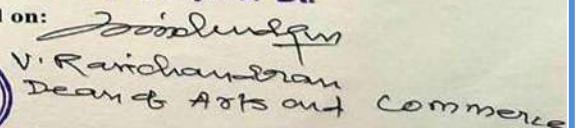 on:
V. Ravichandran
Dean of Arts and Commerce